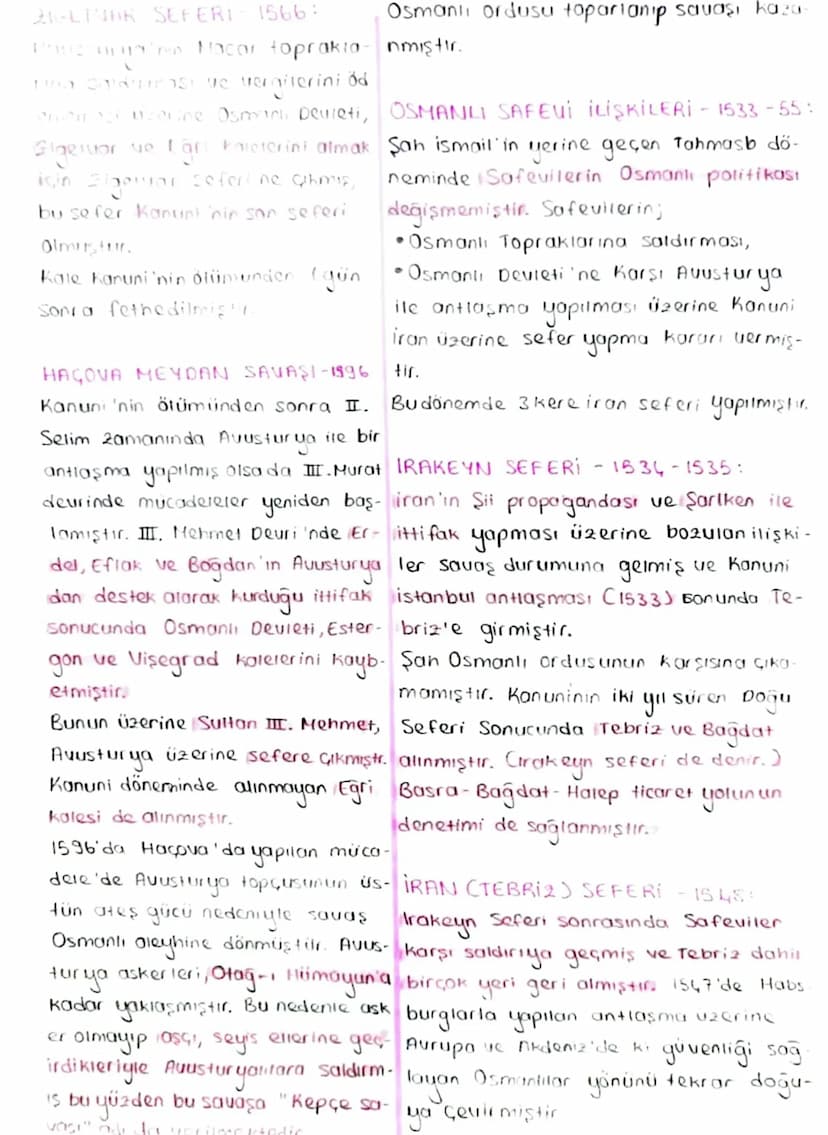 SEFERİ - 1566:
Macar toprakla-
ve vergilerini öd
üzerine Osmanlı Devleti,
Zigetvar ve Eğri kalelerini almak
için Zigetvar Seferi'ne çıkmış,
bu sefer Kanuni'nin son seferi
olmuştur.
Kale Kanuni'nin ölümünden 1 gün
sonra fethedilmiştir.
HAÇOVA MEYDAN SAVAŞI-1596
Kanuni'nin ölümünden sonra II.
Selim zamanında Avusturya ile bir
antlaşma yapılmış olsada III. Murat
devrinde mücadeleler yeniden baş-
lamıştır. III. Mehmet Devri'nde Er-
del, Eflak ve Boğdan'ın Avusturya
dan destek alarak kurduğu ittifak
sonucunda Osmanlı Devleti, Ester-
gon ve Vişegrad kalelerini kayb-
etmiştir.
Bunun üzerine Sultan III. Mehmet,
Avusturya üzerine sefere çıkmıştr.
Kanuni döneminde alınmayan Eğri
kalesi de alınmıştır.
1596'da Haçova'da yapılan müca-
dele'de Avusturya topçusunun üs-
tün ateş gücü nedeniyle savaş
Osmanlı aleyhine dönmüştür. Avus-
turya askerleri, Otağ-ı Hümayun'a
kadar yaklaşmıştır. Bu nedenle ask
er olmayıp aşçı, seyis ellerine geç-
irdikleriyle Avusturyalılara saldırm-
ış bu yüzden bu savaşa "Kepçe sa-
vaşı" adı da verilmektedir
Osmanlı ordusu toparlanıp savaşı kaza-
nmıştır.
OSMANLI SAFEVİ İLİŞKİLERİ - 1533 - 55:
Şah ismail'in yerine geçen Tahmasb dö-
neminde Safevilerin Osmanlı politikası
değişmemiştir. Safevilerin;
• Osmanlı Topraklarına saldırması,
• Osmanlı Devleti'ne Karşı Avusturya
ile antlaşma yapılması üzerine Kanuni
İran üzerine sefer yapma kararı vermiş-
tir.
Bu dönemde 3 kere iran seferi yapılmıştır.
IRAKEYN SEFERİ - 1534 - 1535:
iran'ın Şii propagandası ve Şarlken ile
ittifak yapması üzerine bozulan ilişki-
ler savaş durumuna gelmiş ve Kanuni
istanbul antlaşması (1533) sonunda Te-
briz'e girmiştir.
Şah Osmanlı ordusunun karşısına çıka-
mamıştır. Kanuninin iki yıl süren Doğu
Seferi Sonucunda Tebriz ve Bağdat
alınmıştır. (ırakeyn seferi de denir.)
Basra - Bağdat - Halep ticaret yolunun
denetimi de sağlanmıştır.
İRAN (TEBRİZ) SEFERİ - 1548:
Irakeyn Seferi sonrasında Safeviler
karşı saldırıya geçmiş ve Tebriz dahil
birçok yeri geri almıştır. 1547'de Habs
burglarla yapılan antlaşma üzerine
Avrupa ve Akdeniz'de ki güvenliği sağ
layan Osmanlılar yönünü tekrar doğu-
ya çevirmiştir